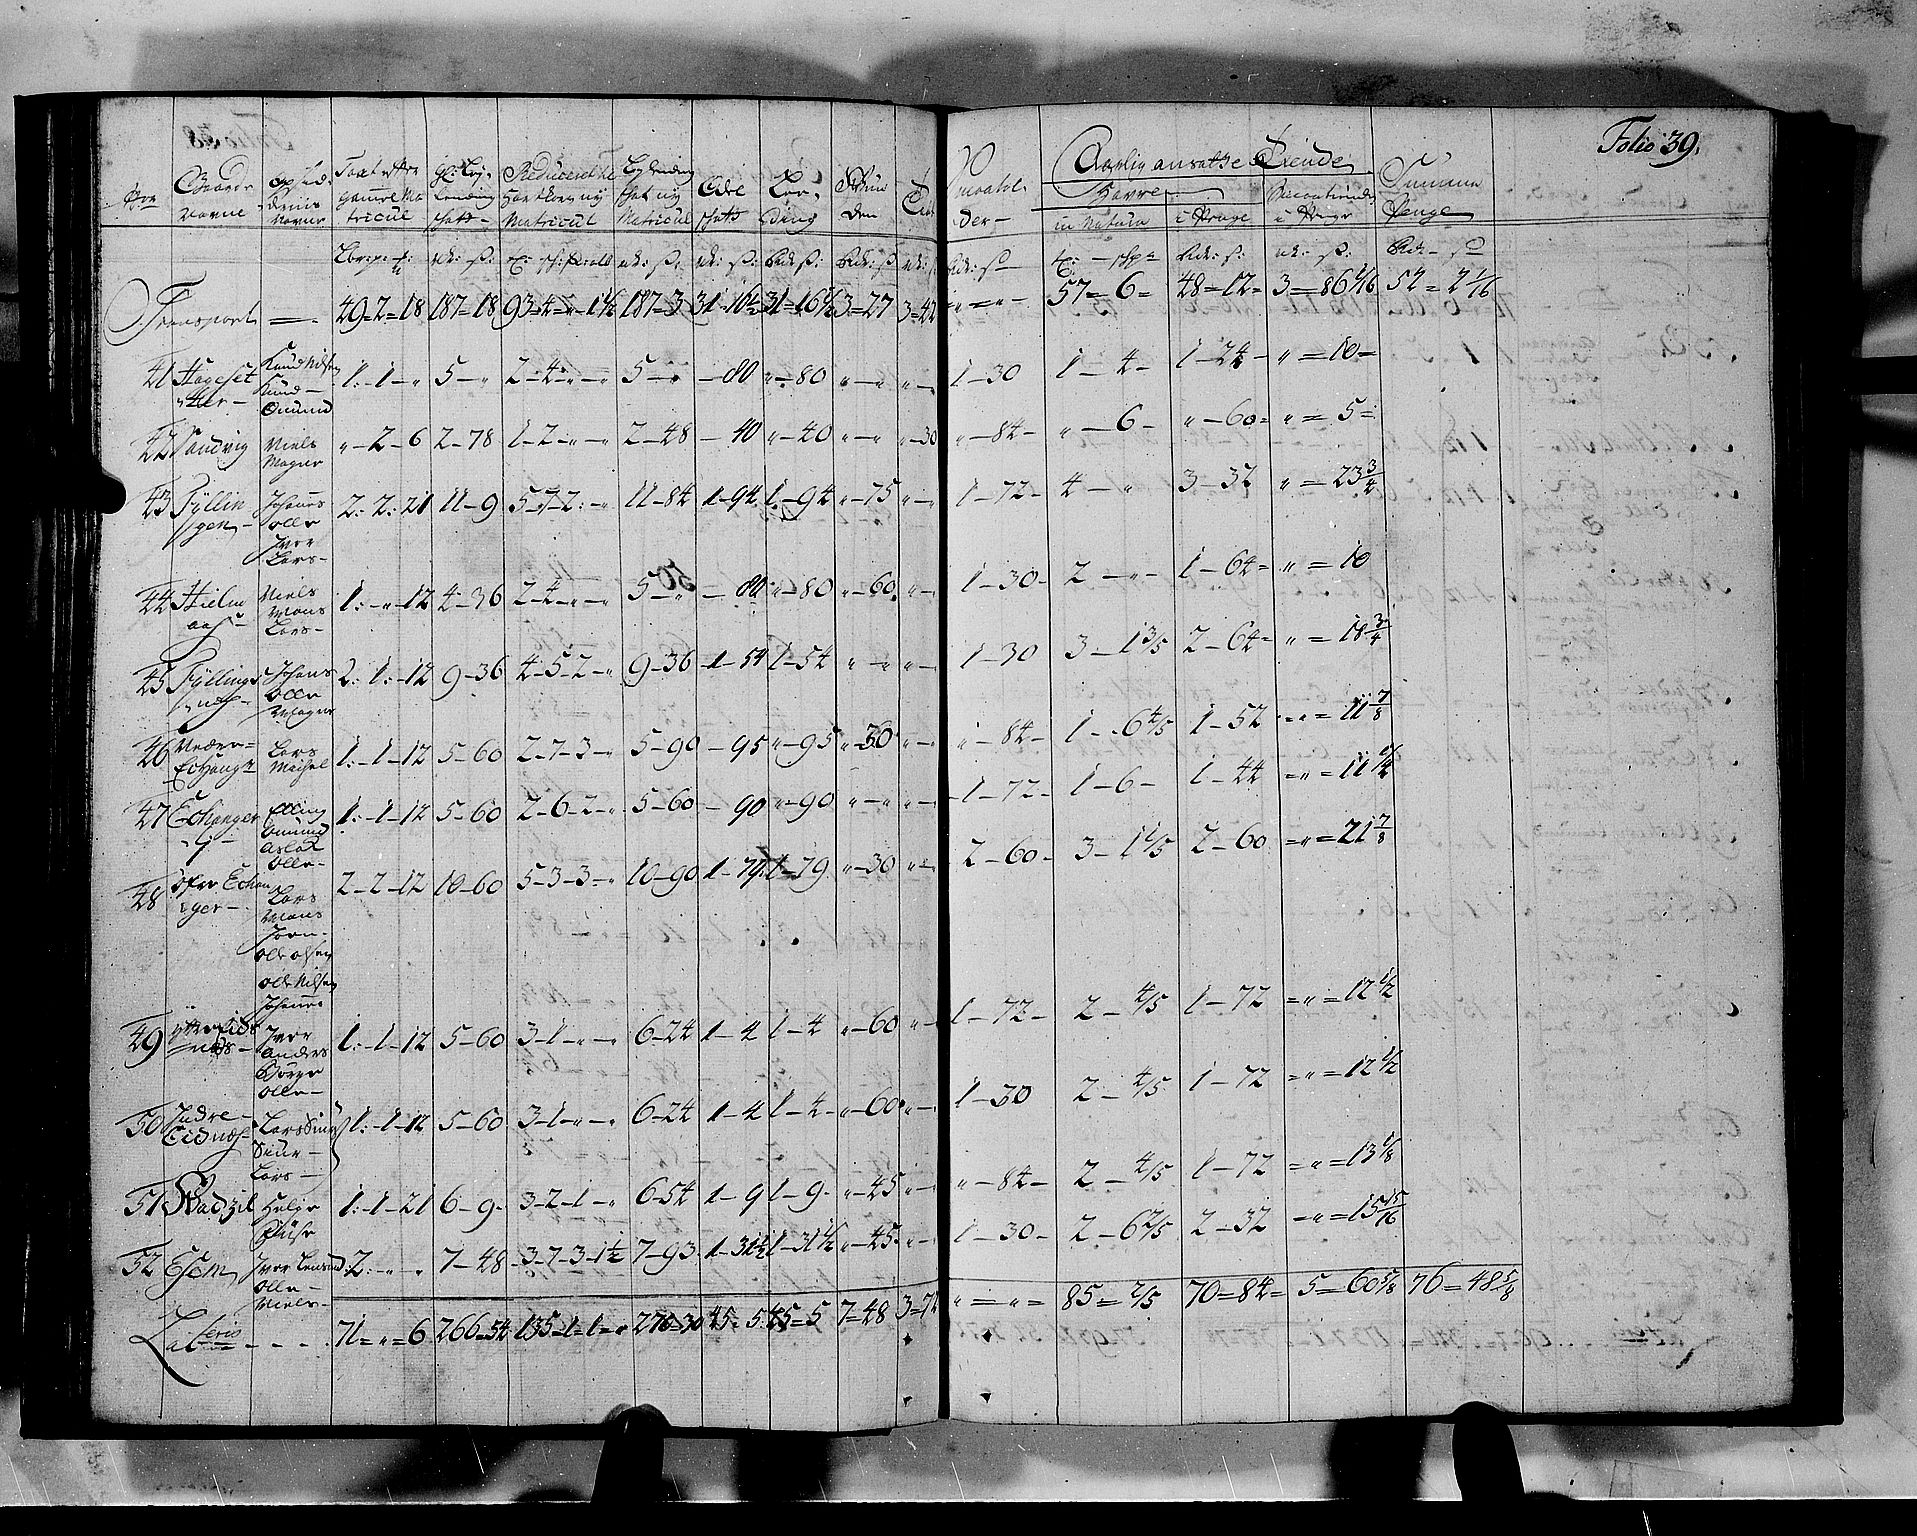 Folio 39.
No
Gaarde Navne
Opsid- dernis Navne
Skatt efter gammel Ma- tricul
Gl: Ley- lending skatt
Reduceret til Hartkorn ny Matricul
Leylending skat ny Matricul
Odel skatt
Lee- ding
Aarlig ansatte Tiende
Havre
in Natura
i Penge
i Penge
Summa Penge
Transport — 49-2-18 187-18 93-4-"-1½ 187-3 31-16½ 31-16½ 3-27 3-42 "-"- 57-6- 48-12- 3-86 52-2 1/16
41 Hageset- ter Knud Nilsen Knud Omund 1:-1-" 5-" 2-4-"-" 5-" -80 "-80 "-" "-" 1-30 1-4- 1-24- "=10-
42 Sandvig Niels Mogne "-2-6 2-78 1-2-"-" 2-48 -40 "-40 "-" "-30 "-84- "-6- "-60- "=5=
43 Fyllin gen Johannes Olle Iver Lars 2:2:21 11-9 5-7-2-" 11-84 1-94 1-94 "-75 "-" 1-72- 4-" 3-37 "=23¾
44 Hielm aas Niels Mons Lars 1:-"-12 4-36 2-4-"-" 5-" -80 "-80 "-60 "-" 1-30- 2-"- 1-64- "=10
45 Fyllings næs Johans Olle Mogne 2:1:-12 9-36 4-5-2-" 9-36 1-54 1-54 "-" "-" 1-30 3-1 3/5 2-64- "=18¾
46 Nedre- Echang Lars Michel 1:-1-12 5-60 2-7-3-" 5-90 -95 "-95 "-30 "-" "-84- 1-6 4/5 1-52 "=11 7/8
47 Echanger Elling Omund Aslak Olle 1:-1-12 5-60 2-6-2-" 5-60 -90 "-90 "-" "-" 1-72- 1-6- 1-44 "=11¼
48 Øfre Echan ger Lars Mons Joen Olle Olsen Ole Nilsen Johannes 2-2-12 10-60 5-3-3-" 10-90 1-79 1-79 "-30 "-" 2-60- 3-1 1/5 2-60 "=21 7/8
49 Ytre Eids næs Iver Anders Børge Olle 1:-1-12 5-60 3-1-"-" 6-24 1-4 1-4 "-60 "-" 1-72- 2-4/5 1-72 "=12½
50 Indre Eidnæs Lars Siur Siur Lars 1:-1-12 5-60 3-1-"-" 6-24 1-4 1-4- "-60 "-" 1-30 2-4/5 1-72 "=12½
51 Wadzel Helge 1:-1-21 6-9- 3-2-1-" 6-54 1-9 1-9- "-45 "-" "-84- 2-4/5 1-72 "=13 1/8
52 Esem Iver Olle Niels 2:-"-" 7-48 3-7-3-1½ 7-93 1-31½ 1-31½ "-45 "-" 1-30- 2-6 2/5 2-32 "=15 15/16
Lateris - - - 71="=6 266=54 135-1-1-" 270=30 45-5 45-5 7-48 3-72 "="= 85=2/5 70=84= 5=60 5/8 76=48 5/8